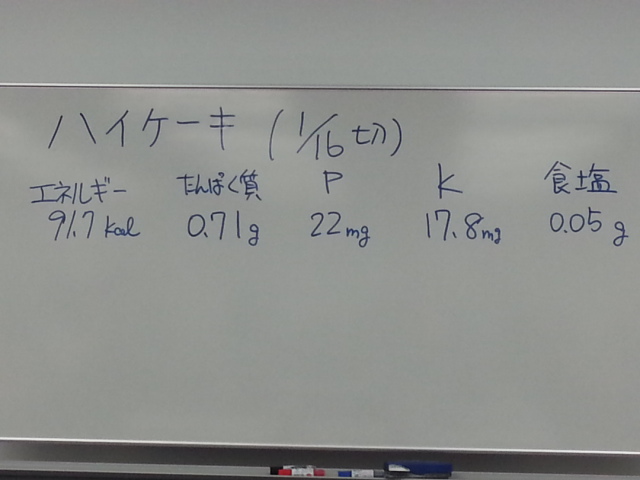 ハイケーキ (1/16切)
エネルギー たんぱく質 P K 食塩
91.7kcal 0.71g 22mg 17.8mg 0.05g